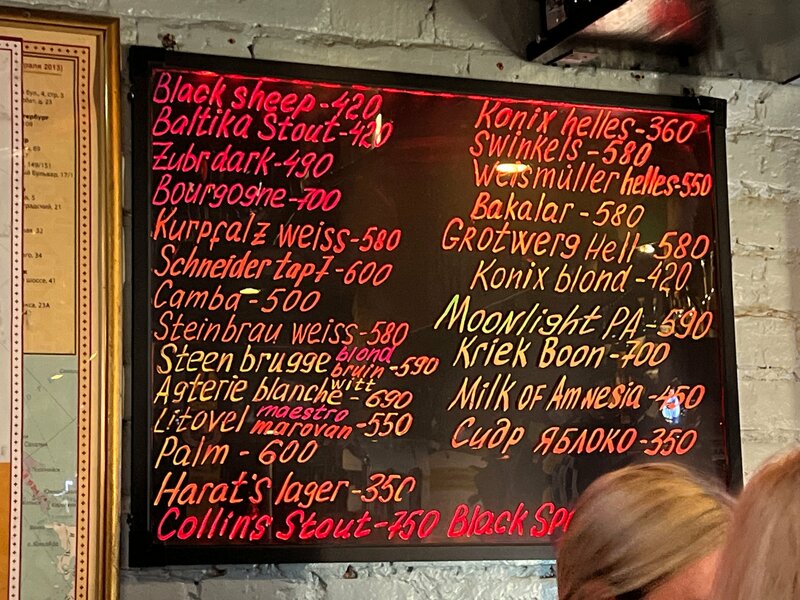 раля 2013)
вбат, д. 23
149/151
ий бульвар, 17/1
радский, 21
ая 32
о, 34
шоссе, 41
ка, 23А
Black sheep - 420
Baltika Stout - 420
Zubr dark - 490
Bourgogne - 700
Kurpfalz weiss - 580
Schneider tap 7 - 600
Camba - 500
Steinbrau weiss - 580
Steenbrugge blond
bruin - 590
witt
Agterie blanche - 690
Litovel maestro
marovan - 550
Palm - 600
Harat's lager - 350
Collin's Stout - 750 Black
Konix helles - 360
Swinkels - 580
Weismüller helles - 550
Bakalar - 580
Grotwerg Hell - 580
Konix blond - 420
Moonlight PA - 590
Kriek Boon - 700
Milk of Amnesia - 450
Сидр ЯБЛОКО - 350